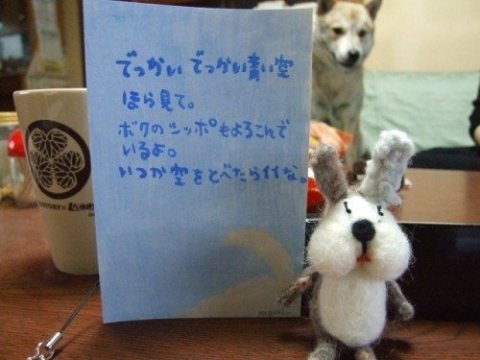 でっかい でっかい青い空
ほら見て。
ボクのシッポもよろこんで
いるよ。
いつか空をとべたらイイな。